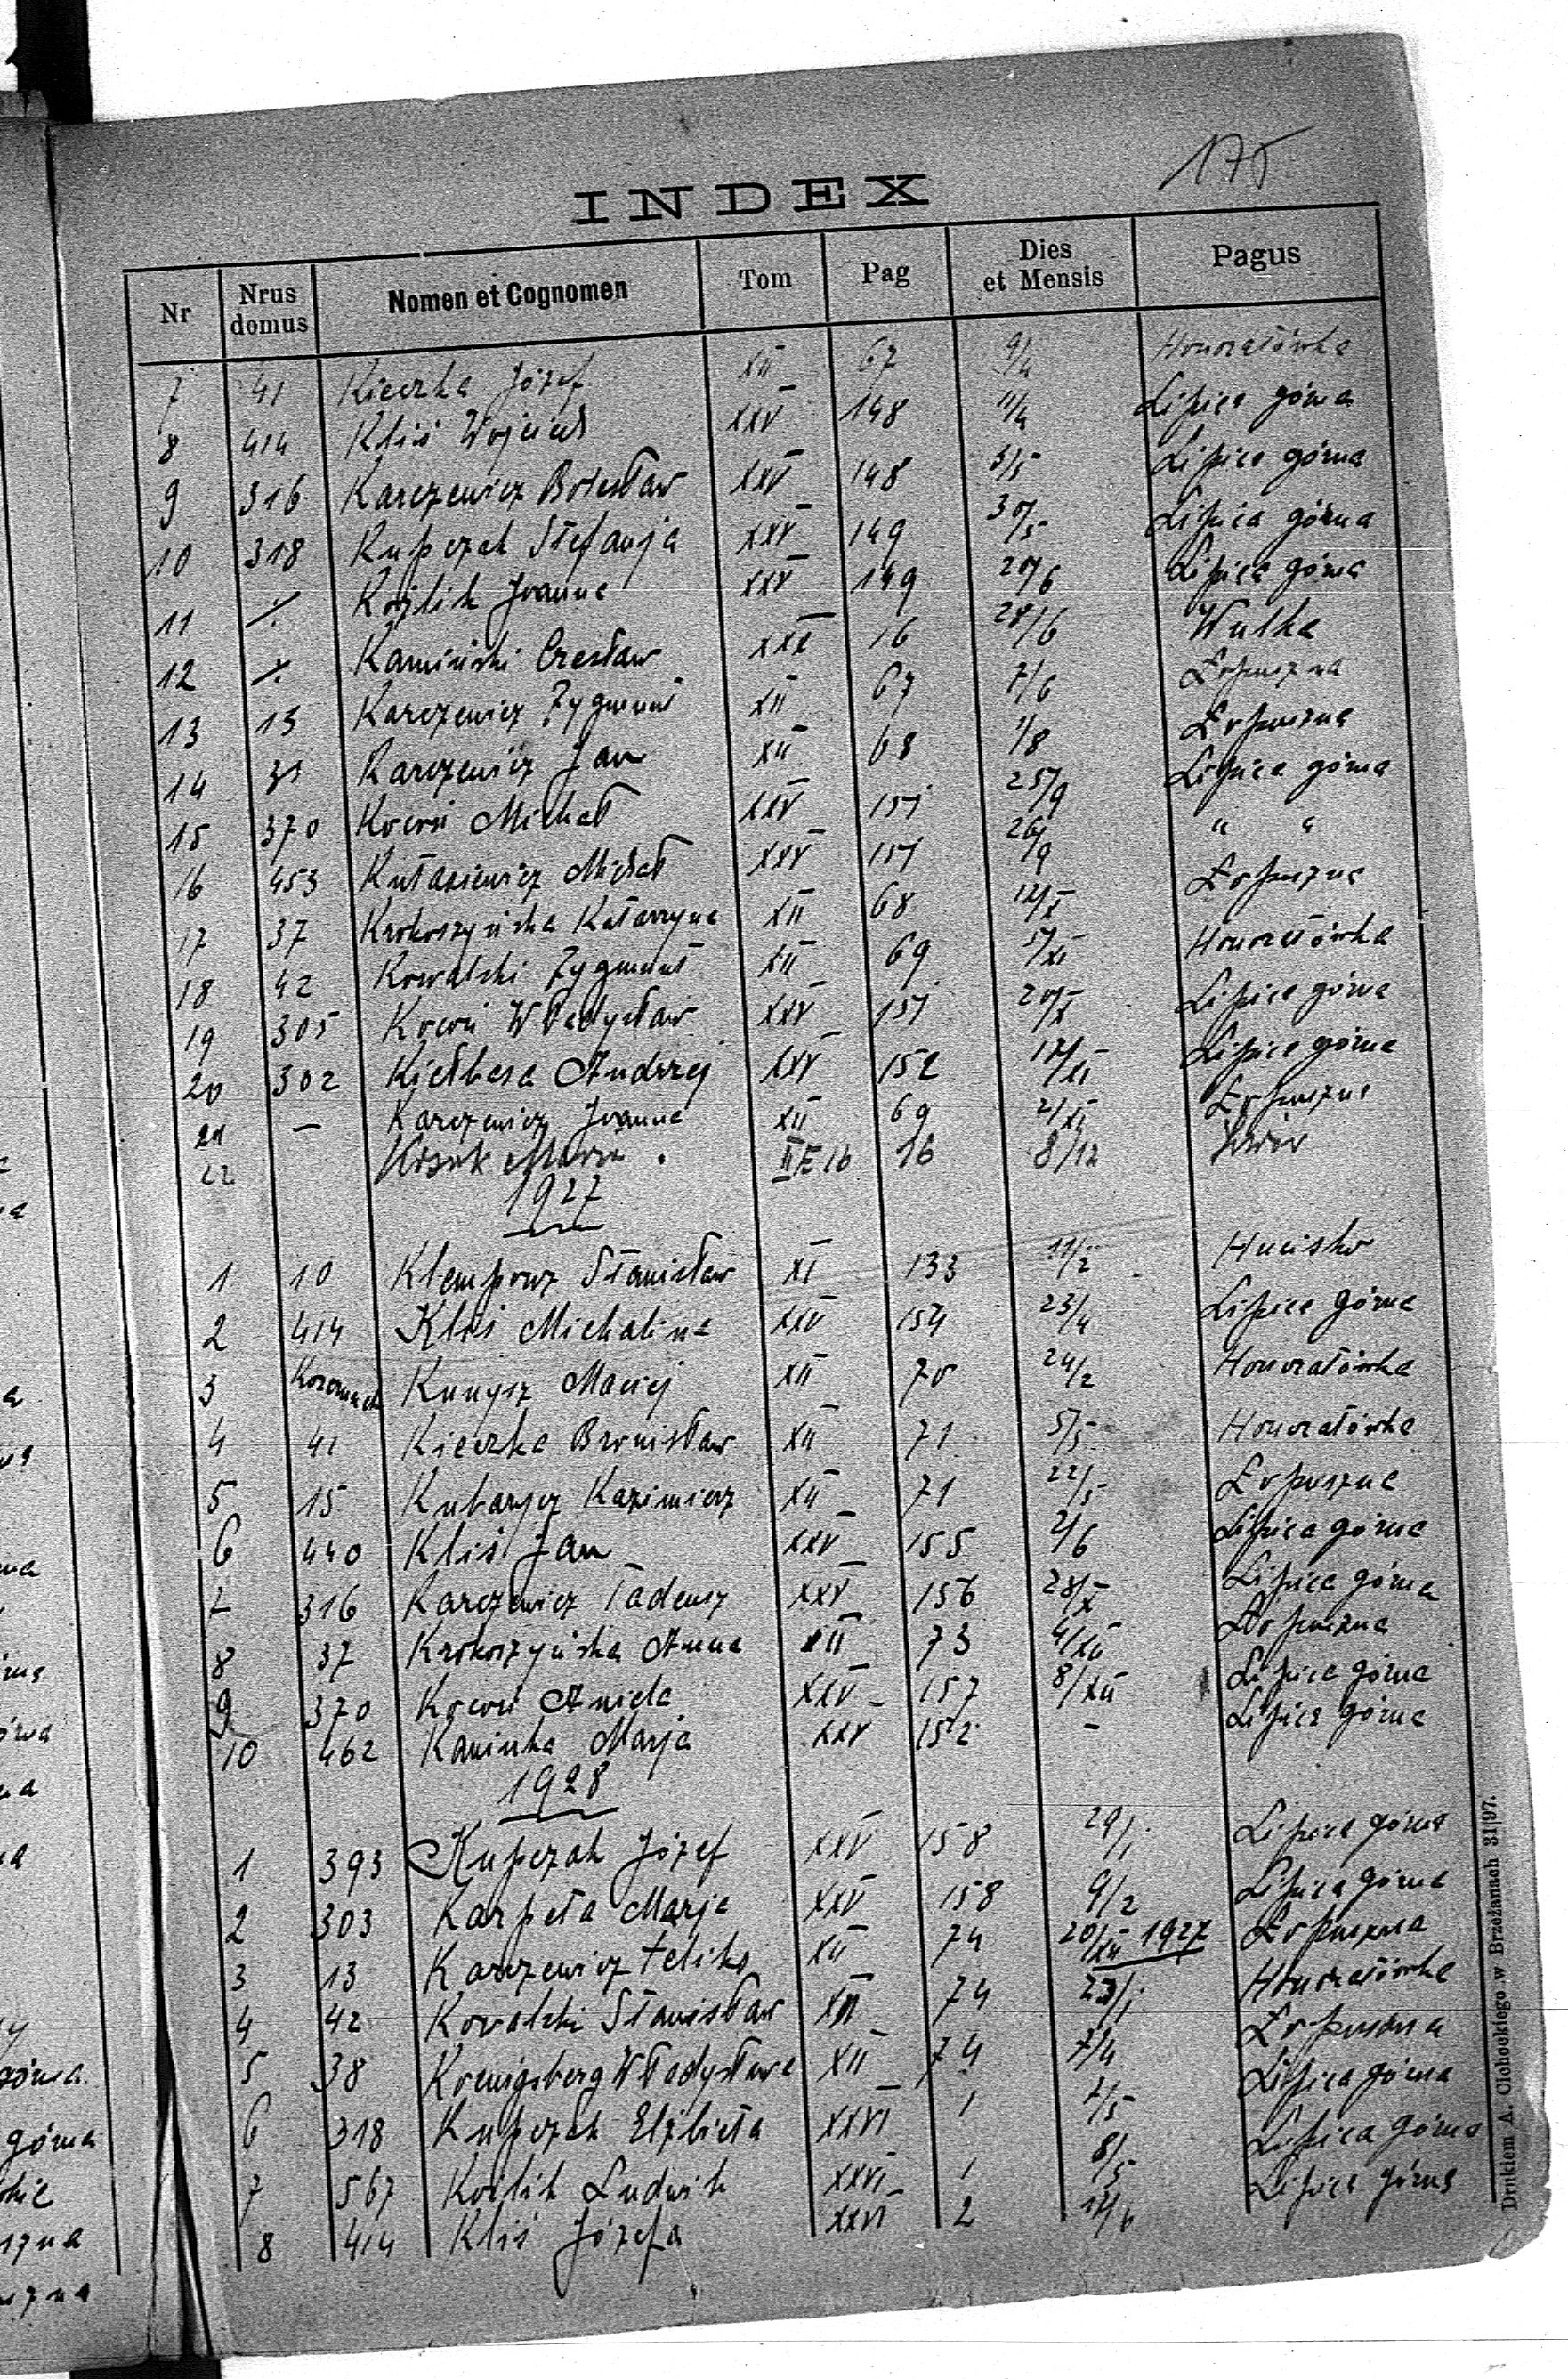 175
INDEX
Nr Nrus domus Nomen et Cognomen Tom Pag Dies et Mensis Pagus
7 41 Kieczka Józef XII 67 9/4 Honoratówka
8 414 Kliś Wojciech XXV 148 11/4 Lipica górna
9 316 Karczewicz Bolesław XXV 148 3/5 Lipica górna
10 318 Kupczak Stefanja XXV 149 30/5 Lipica górna
11 Koźlik Joanna XXV 149 20/6 Lipica górna
12 Kamiński Czesław XXX 16 28/6 Wulka
13 13 Karczewicz Zygmunt XII 67 7/6 Łopuszna
14 31 Karczewicz Jan XII 68 1/8 Łopuszna
15 370 Kocoń Michał XXV 151 25/9 Lipica górna
16 453 Kutasiewicz Michał XXV 151 26/9 " "
17 37 Krokoszyńska Katarzyna XII 68 12/X Łopuszna
18 42 Kowalski Zygmunt XII 69 5/XI Honoratówka
19 305 Kocoń Władysław XXV 151 20/X Lipica górna
20 302 Kiełbasa Andrzej XXV 152 17/XI Lipica górna
21 — Karczewicz Joanna XII 69 2/XII Łopuszna
22 Maria II E 16 16 8/12
1927
1 10 Klemporz Stanisław XI 133 11/2 Hucisko
2 414 Kliś Michalina XXV 154 23/4 Lipica górna
3 Kunysz Maciej XII 70 24/2 Honoratówka
4 41 Kieczka Bronisław XII 71 5/5 Honoratówka
5 15 Kubarycz Kazimierz XII 71 22/5 Łopuszna
6 440 Kliś Jan XXV 155 2/6 Lipica górna
7 316 Karczewicz Tadeusz XXV 156 28/X Lipica górna
8 37 Krokoszyńska Anna XII 73 4/XII Łopuszna
9 370 Kocoń Aniela XXV 157 8/XII Lipica górna
10 462 Kaminska Marja XXV 152 - Lipica górna
1928
1 393 Kupczak Józef XXV 158 29/1 Lipica górna
2 303 Karpeta Marja XXV 158 9/2 Lipica górna
3 13 Karczewicz Feliks XII 74 20/XII 1927 Łopuszna
4 42 Kowalski Stanisław XII 74 23/1 Honoratówka
5 38 Koenigsberg Władysława XII 74 7/4 Łopuszna
6 318 Kupczak Elżbieta XXVI 1 2/5 Lipica górna
7 567 Koźlik Ludwik XXVI 1 8/5 Lipica górna
8 414 Kliś Józefa XXVI 2 17/6 Lipica górna
Drukiem A. Cichockiego w Brzeżanach 31|97.